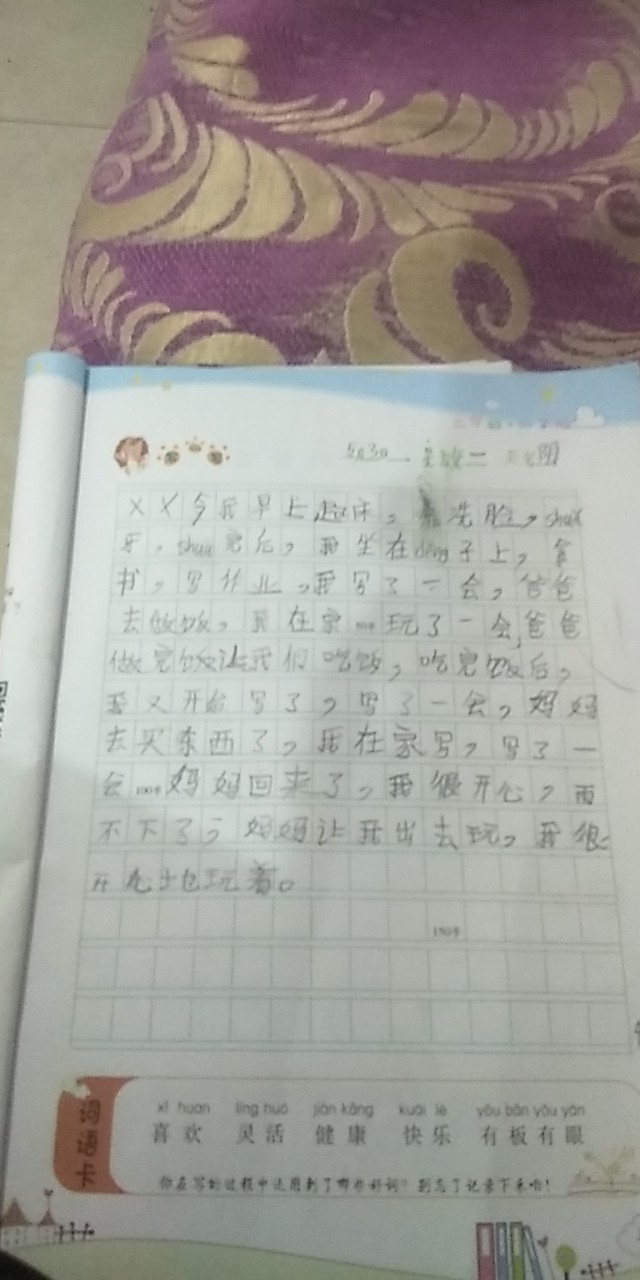 5月3日 星期二 天气阴
××今我早上起床，洗脸，shuā
牙，shuā完后，我坐在dèng子上，拿
书，写作业，我写了一会，爸爸
去做饭，我在家玩了一会，爸爸
做完饭让我们吃饭，吃完饭后，
我又开始写了，写了一会，妈妈
去买东西了，我在家写，写了一
会100字妈妈回来了，我很开心，雨
不下了，妈妈让我出去玩，我很
开心地玩着。
150字
词语卡
xǐ huan líng huó jiàn kāng kuài lè yǒu bǎn yǒu yǎn
喜欢 灵活 健康 快乐 有板有眼
你在写的过程中还用到了哪些好词？别忘了记录下来哟！